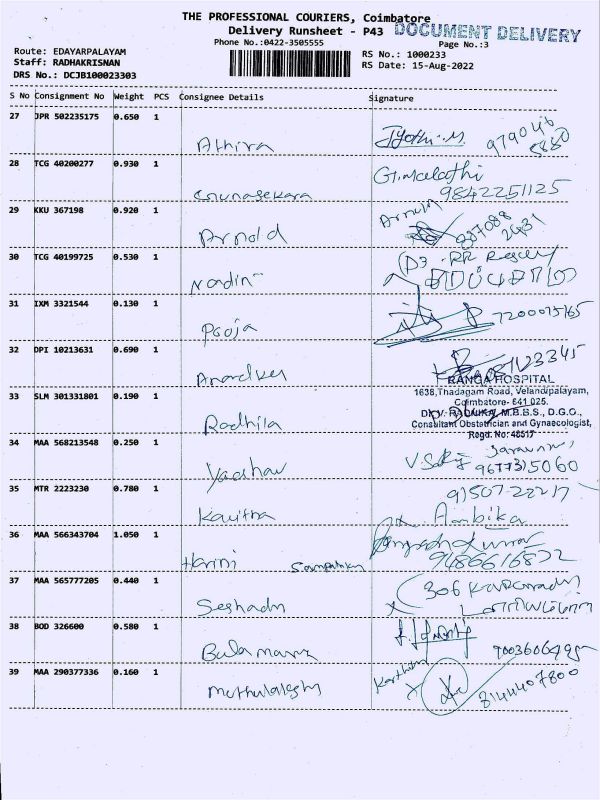 THE PROFESSIONAL COURIERS, Coimbatore
Delivery Runsheet - P43
DOCUMENT DELIVERY
Phone No.:0422-3505555
Page No.:3
Route: EDAYARPALAYAM
RS No.: 1000233
Staff: RADHAKRISNAN
RS Date: 15-Aug-2022
DRS No.: DCJB100023303
S No Consignment No Weight PCS Consignee Details Signature
27 JPR 502235175 0.650 1
Athira Jyothi.M. 979046
28 TCG 40200277 0.930 1
Gunasekara G.Malathi
9842251125
29 KKU 367198 0.920 1
Arnold Arnold
30 TCG 40199725 0.530 1
Nadin
31 IXM 3321544 0.130 1
Pooja 7200075165
32 DPI 10213631 0.690 1
RANGA HOSPITAL
1638,Thadagam Road, Velandipalayam,
33 SLM 301331801 0.190 1
Coimbatore- 641 025.
Radhila M.B.B.S., D.G.O.,
Consultant Obstetrician and Gynaecologist,
Regd. No: 48517
34 MAA 568213548 0.250 1
Yadhav 9677315060
35 MTR 2223230 0.780 1
91507-22217
Kavitha Ambika
36 MAA 566343704 1.050 1
Harini Sampathkumar
9486616832
37 MAA 565777205 0.440 1
306
Seshadri
38 BOD 326600 0.580 1
Balamani
39 MAA 290377336 0.160 1
Karthik
Muthulakshmi 8144407800